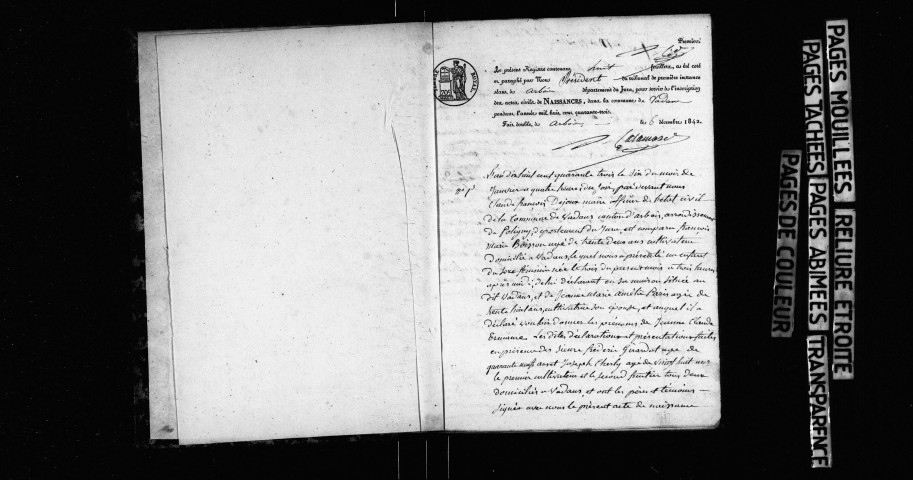 Premier
Le présent Registre contenant huit feuillets, a été coté
et paraphé par Nous Président du tribunal de première instance
séant de arbois département du Jura, pour servir de l'inscription
des actes civils de NAISSANCES, dans la commune de Vadans
pendant l'année mil huit cent quarante-trois.
Fait double, à arbois le 6 décembre 1842.
N° 1er
L'an dix huit cent quarante trois le six du mois de
Janvier a quatre heures du soir, par devant nous
Claude françois Dejoux maire officier de l'état civil
de la Commune de Vadans canton d'arbois, arrondissement
de Poligny, département du Jura, est comparu françois
Marie Boisson agé de trente deux ans cultivateur
domicilié a Vadans lequel nous a présenté un enfant
du sexe féminin née le trois du present mois a trois heures
après midi, de lui déclarant en sa maison située au
dit Vadans, et de Jeanne Marie Amélie Paris agée de
trente huit ans, cultivatrice son épouse, et auquel il a
déclaré vouloir donner les prénoms de Jeanne Claude
Les dites déclarations et présentations faites
en présence des sieurs frédéric Girardot agé de
quarante neuf ans et Joseph agé de vingt huit ans
le premier cultivateur et le second tous deux
domiciliés a Vadans, et ont les père et témoins
signés avec nous le présent acte de naissance
PAGES MOUILLEES RELIURE ETROITE
PAGES TACHEES PAGES ABIMEES TRANSPARENCE
PAGES DE COULEUR